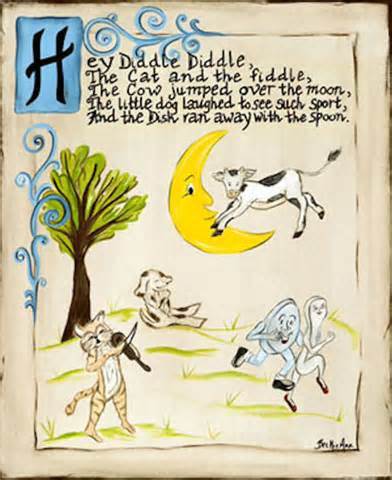 Hey Diddle Diddle,
The Cat and the fiddle,
The Cow jumped over the moon,
The little dog laughed to see such sport,
And the Dish ran away with the Spoon.